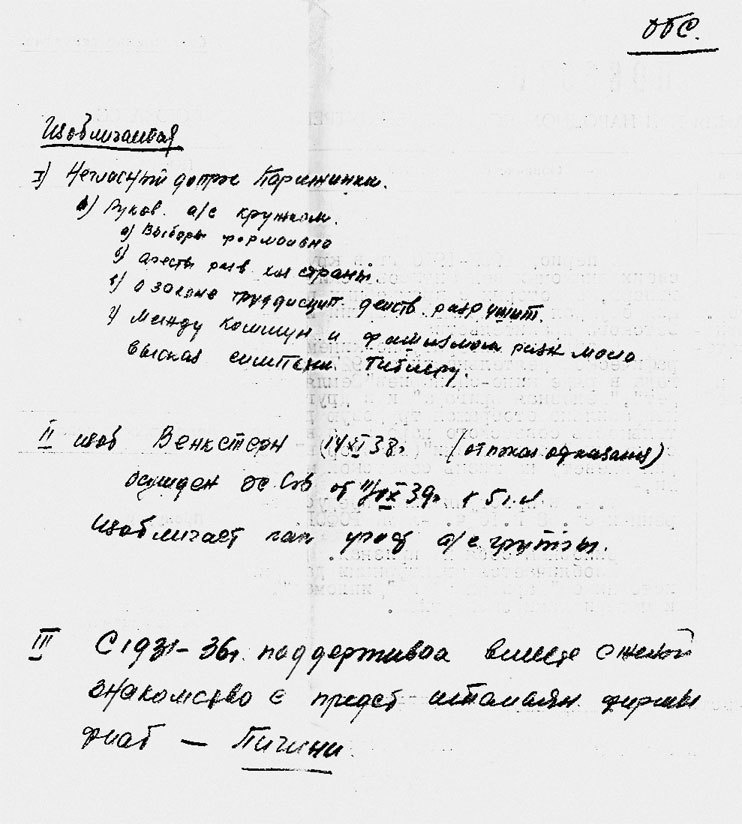 ОБС.
Изобличается
I) Негласный допрос Парижинки.
а) Руков. а/с кружком.
а) Выборы формально
б) аресты разв. хоз страны
в) о законе труддисцип. действ. разрушит.
г) Между коммун и фашизмом разн мало
Высказ симпати. Гитлеру.
II изоб Венкстерн (14/XI 38г. (от показ отказался)
осужден ОС Сов от 39г. к 5г. л
Изобличает как участ а/с группы.
III С 1931–36г. поддерживал вместе с женой
знакомство с предст итальян. фирмы
фиат — Пичини.